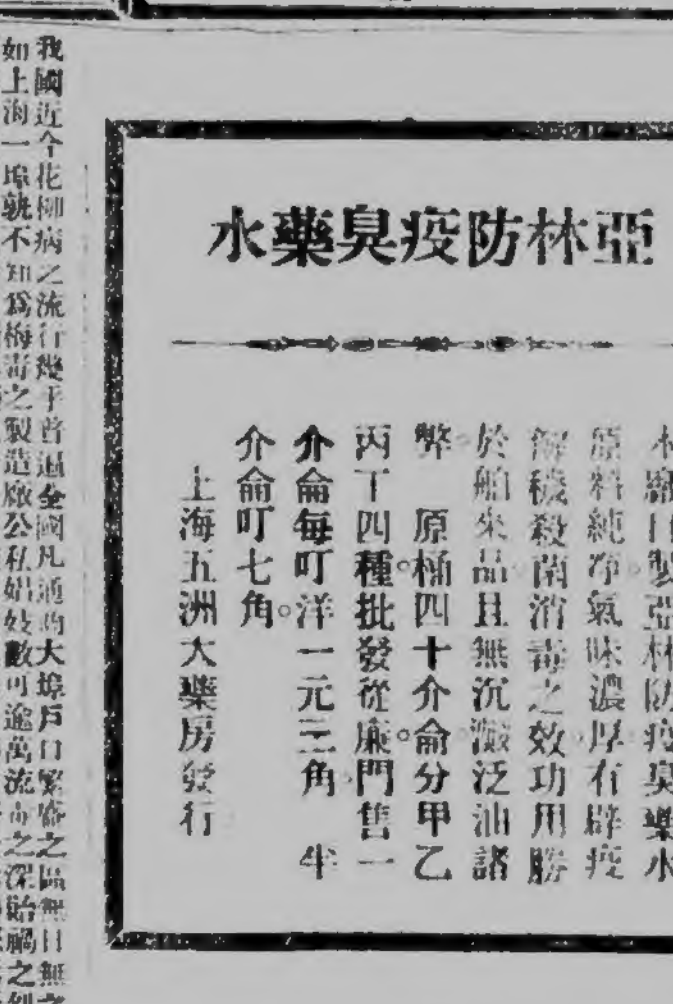 亞林防疫臭藥水
本廠自製亞林防疫臭藥水
原料純淨氣味濃厚有辟疫
解穢殺菌消毒之效功用勝
於舶來品且無沉澱泛油諸
弊 原桶四十介侖分甲乙
丙丁四種批發從廉門售一
介侖每叮洋一元三角 半
介侖叮七角
上海五洲大藥房發行
我國近今花柳病之流行幾于普遍全國凡通商大埠戶口繁盛之區無日無之
如上海一埠孰不知為梅毒之製造廠公私娼妓數可逾萬流毒之深貽禍之烈